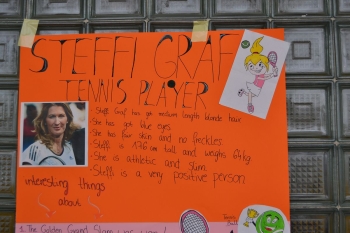 STEFFI GRAF
TENNIS PLAYER
- Steffi Graf has got medium length blonde hair
- She has got blue eyes
- She has fair skin and no freckles.
- Steffi is 176 cm tall and weighs 64kg
- She is athletic and slim.
- Steffi is a very positive person
interesting things
about
1. The Golden Grand Slam